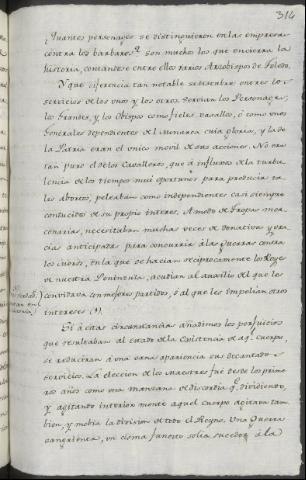 314
¿Quantos personages se distinguieron en las empresas
contra los barbaros? Son muchos los que encierra la
historia, contandose entre ellos varios Arzobispos de Toledo.
Y que diferencia tan notable se descubre entre los
servicios de los unos y los otros. Servian los Personages,
los Grandes, y los Obispos como fieles vasallos, ó como unos
Generales dependientes del Monarca cuia gloria, y la de
la Patria eran el unico movil de sus acciones. No era
tan puro el de los Cavalleros, que á influxo de la turbu-
lencia de los tiempos mui oportunos para producir ta-
les abortos, peleaban como independientes casi siempre
conducidos de su propio interes. A modo de Tropas mer-
cenarias, necesitaban muchas veces de donativos y gra-
cias anticipadas para concurrir á las Guerras contra
los moros, en las que se hacian reciprocamente los Reyes
de nuestra Peninsula, acudian al auxilio del que les
convidava con mejores partidos, ó al que les impelian otros
intereses (1).
Si á estas circunstancias añadimos los perjuicios
que resultaban al estado de la existencia de aq.l cuerpo,
se reducirán á una vana apariencia sus decantados
servicios. La eleccion de los Maestres fué desde los prime-
ros años como una manzana de discordia q.e dividiendo,
y agitando interiormente aquel cuerpo agitava tam-
bien, y movia la division de todo el Reyno. Una Guerra
sangrienta, un cisma funesto solia suceder á la